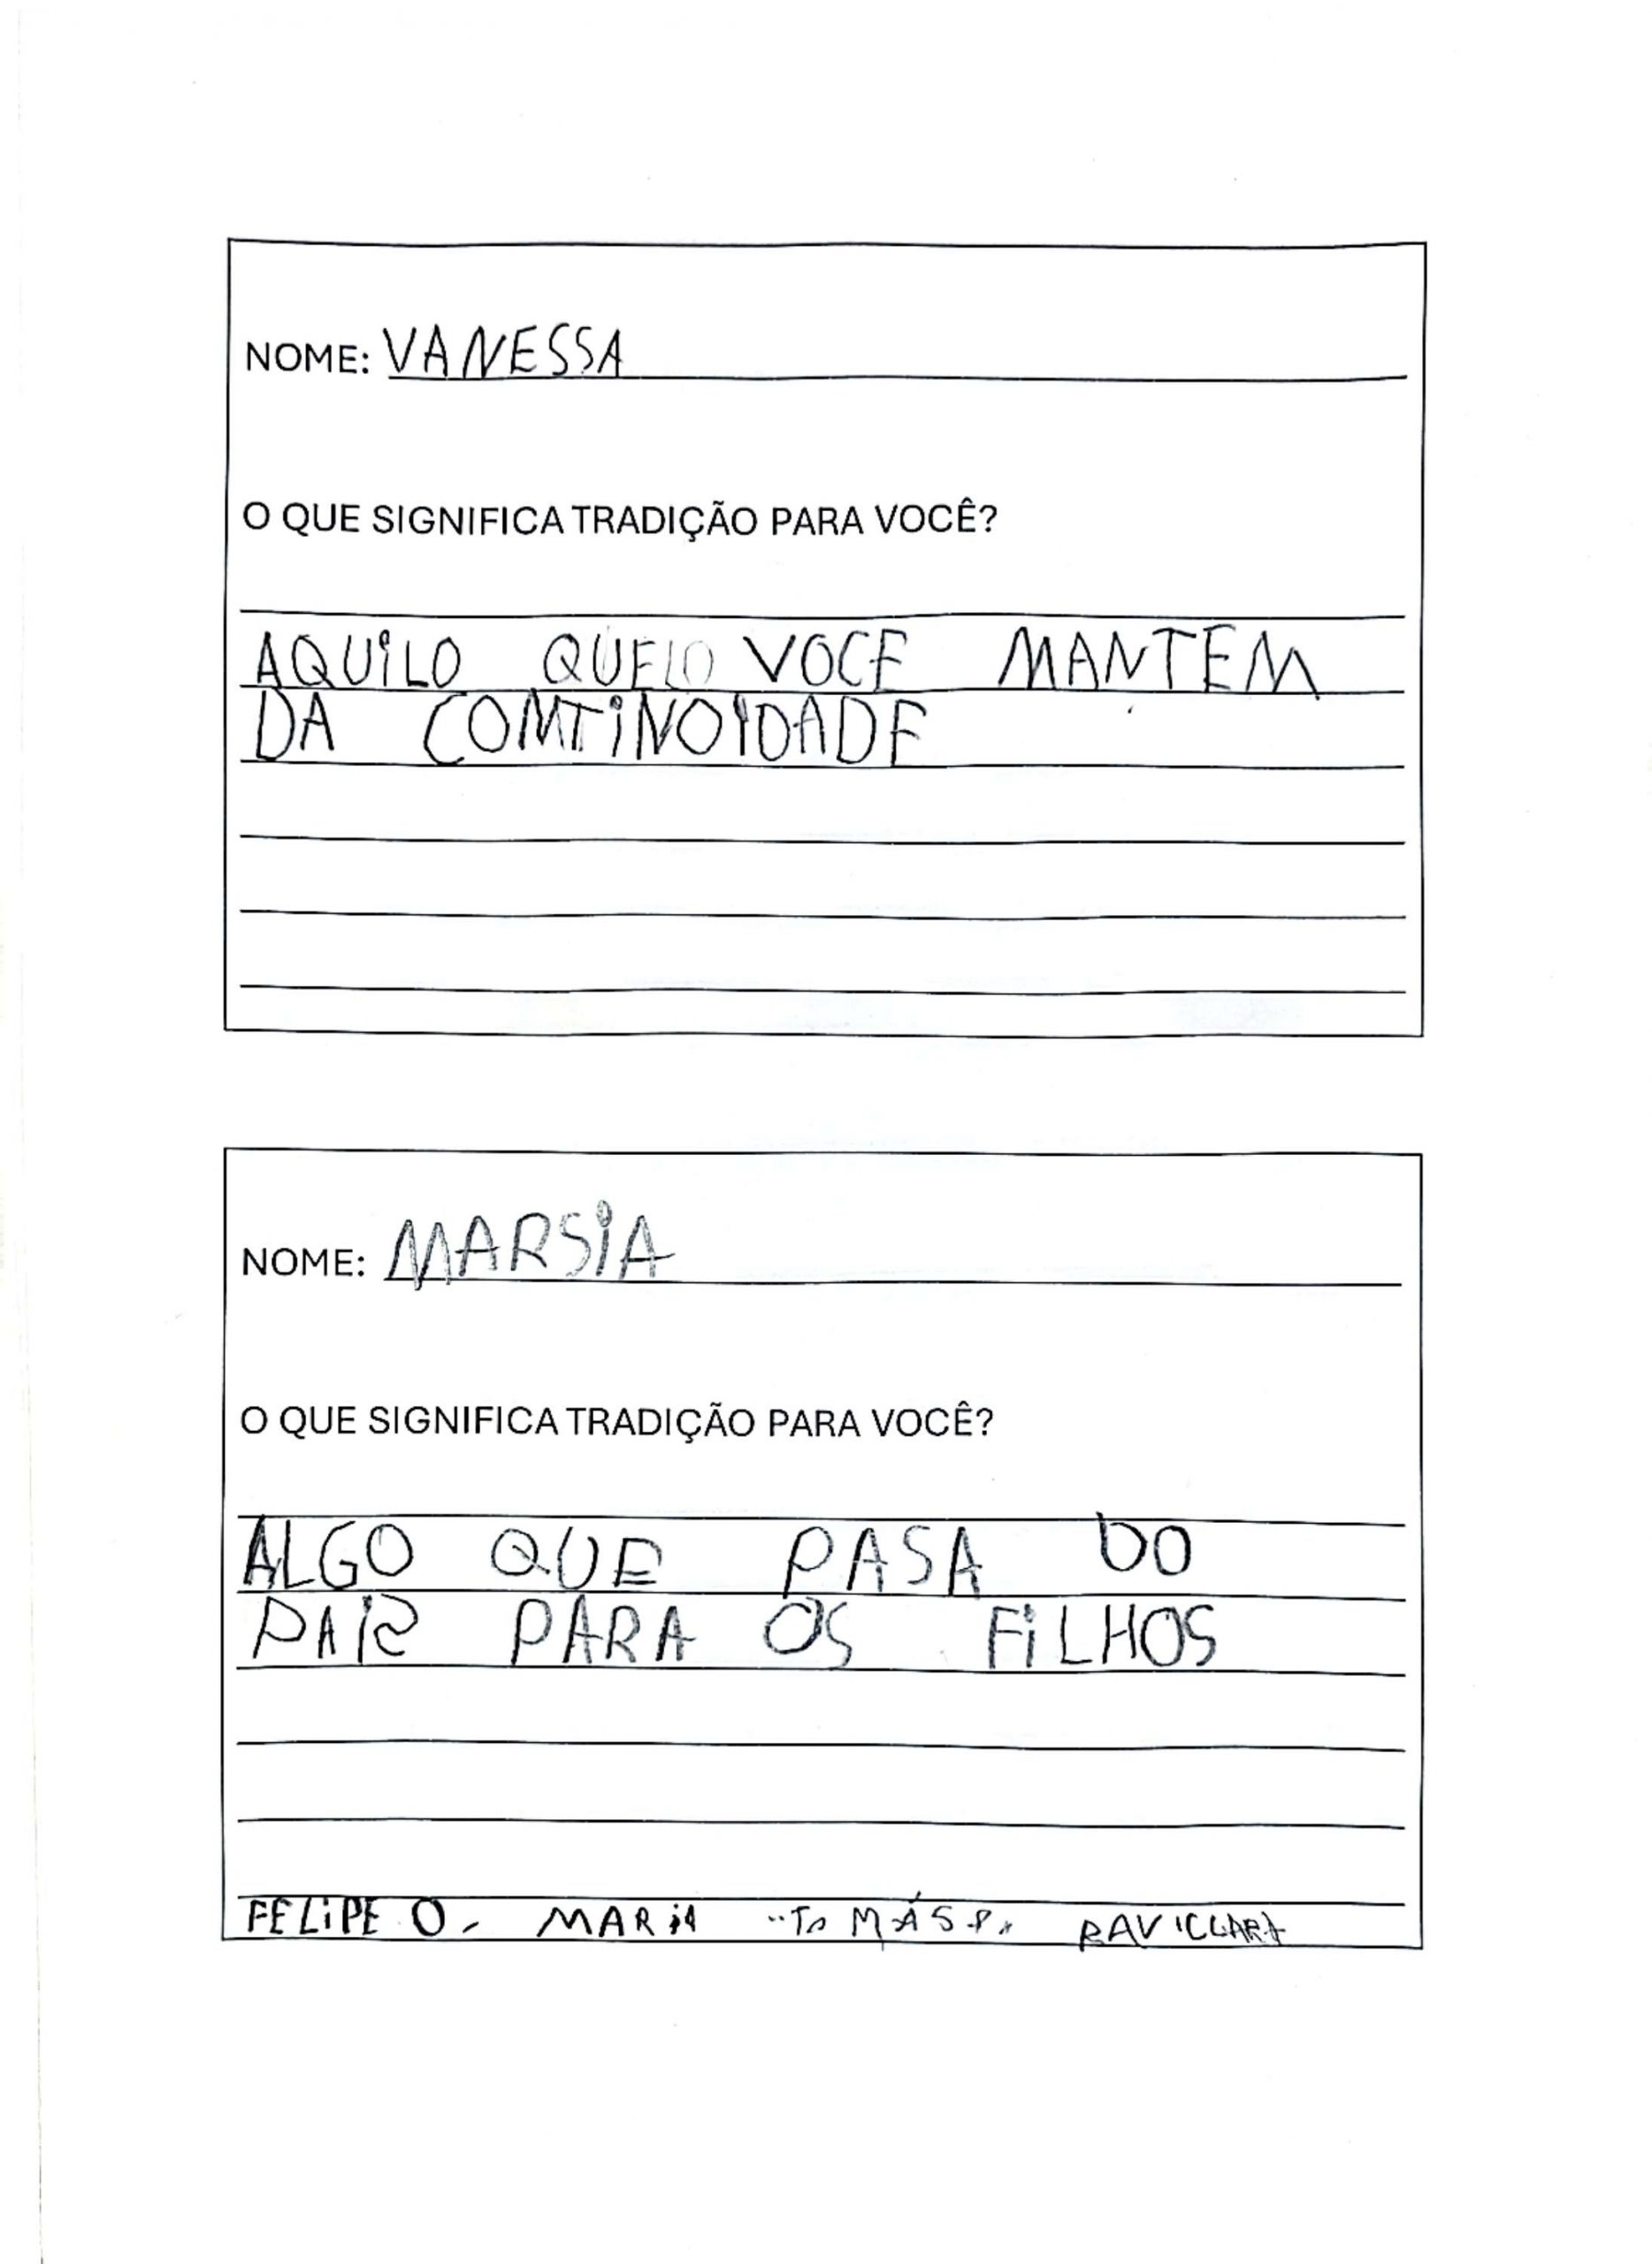 NOME: VANESSA
O QUE SIGNIFICA TRADIÇÃO PARA VOCÊ?
AQUILO QUE VOCE MANTEM
DA COMTINOIDADE
NOME: MARSIA
O QUE SIGNIFICA TRADIÇÃO PARA VOCÊ?
ALGO QUE PASA DO
PAIS PARA OS FILHOS
FELIPE O. MARIA TOMÁS P. RAVI CLARA